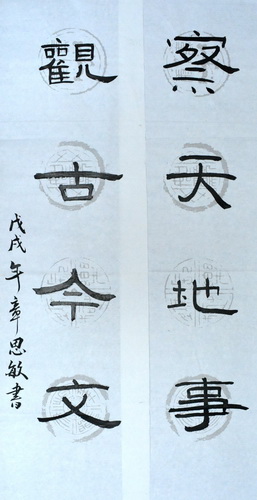 察天地事
觀古今文
戊戌年章思敏書